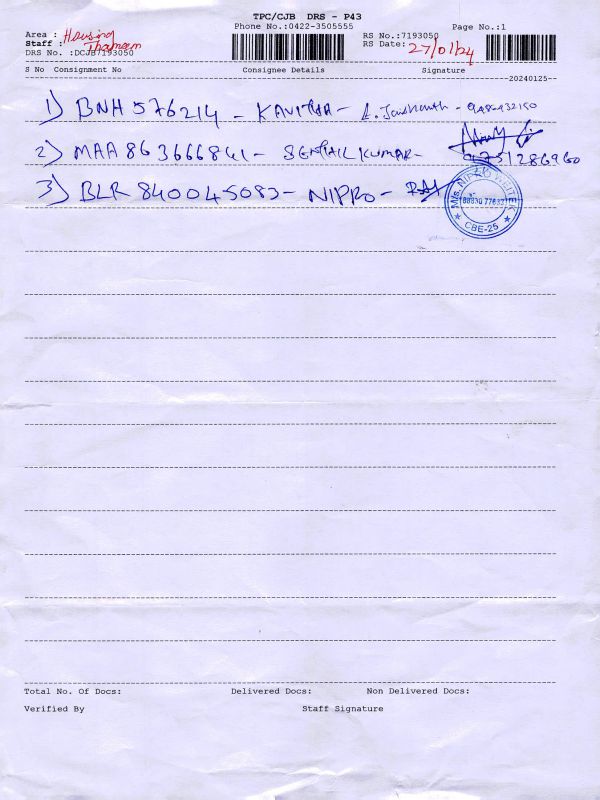 TPC/CJB DRS - P43
Phone No.:0422-3505555
Page No.:1
Area : Housing
Staff : Thamam
DRS No. :DCJB7193050
RS No.:7193050
RS Date: 27/01/24
S No Consignment No Consignee Details Signature
20240125
1) BNH 576214 - KAVITHA -
2) MAA 863666841 - SENTHIL KUMAR -
9751286960
3) BLR 840045083 - NIPRO -
CBE-25
Total No. Of Docs: Delivered Docs: Non Delivered Docs:
Verified By Staff Signature